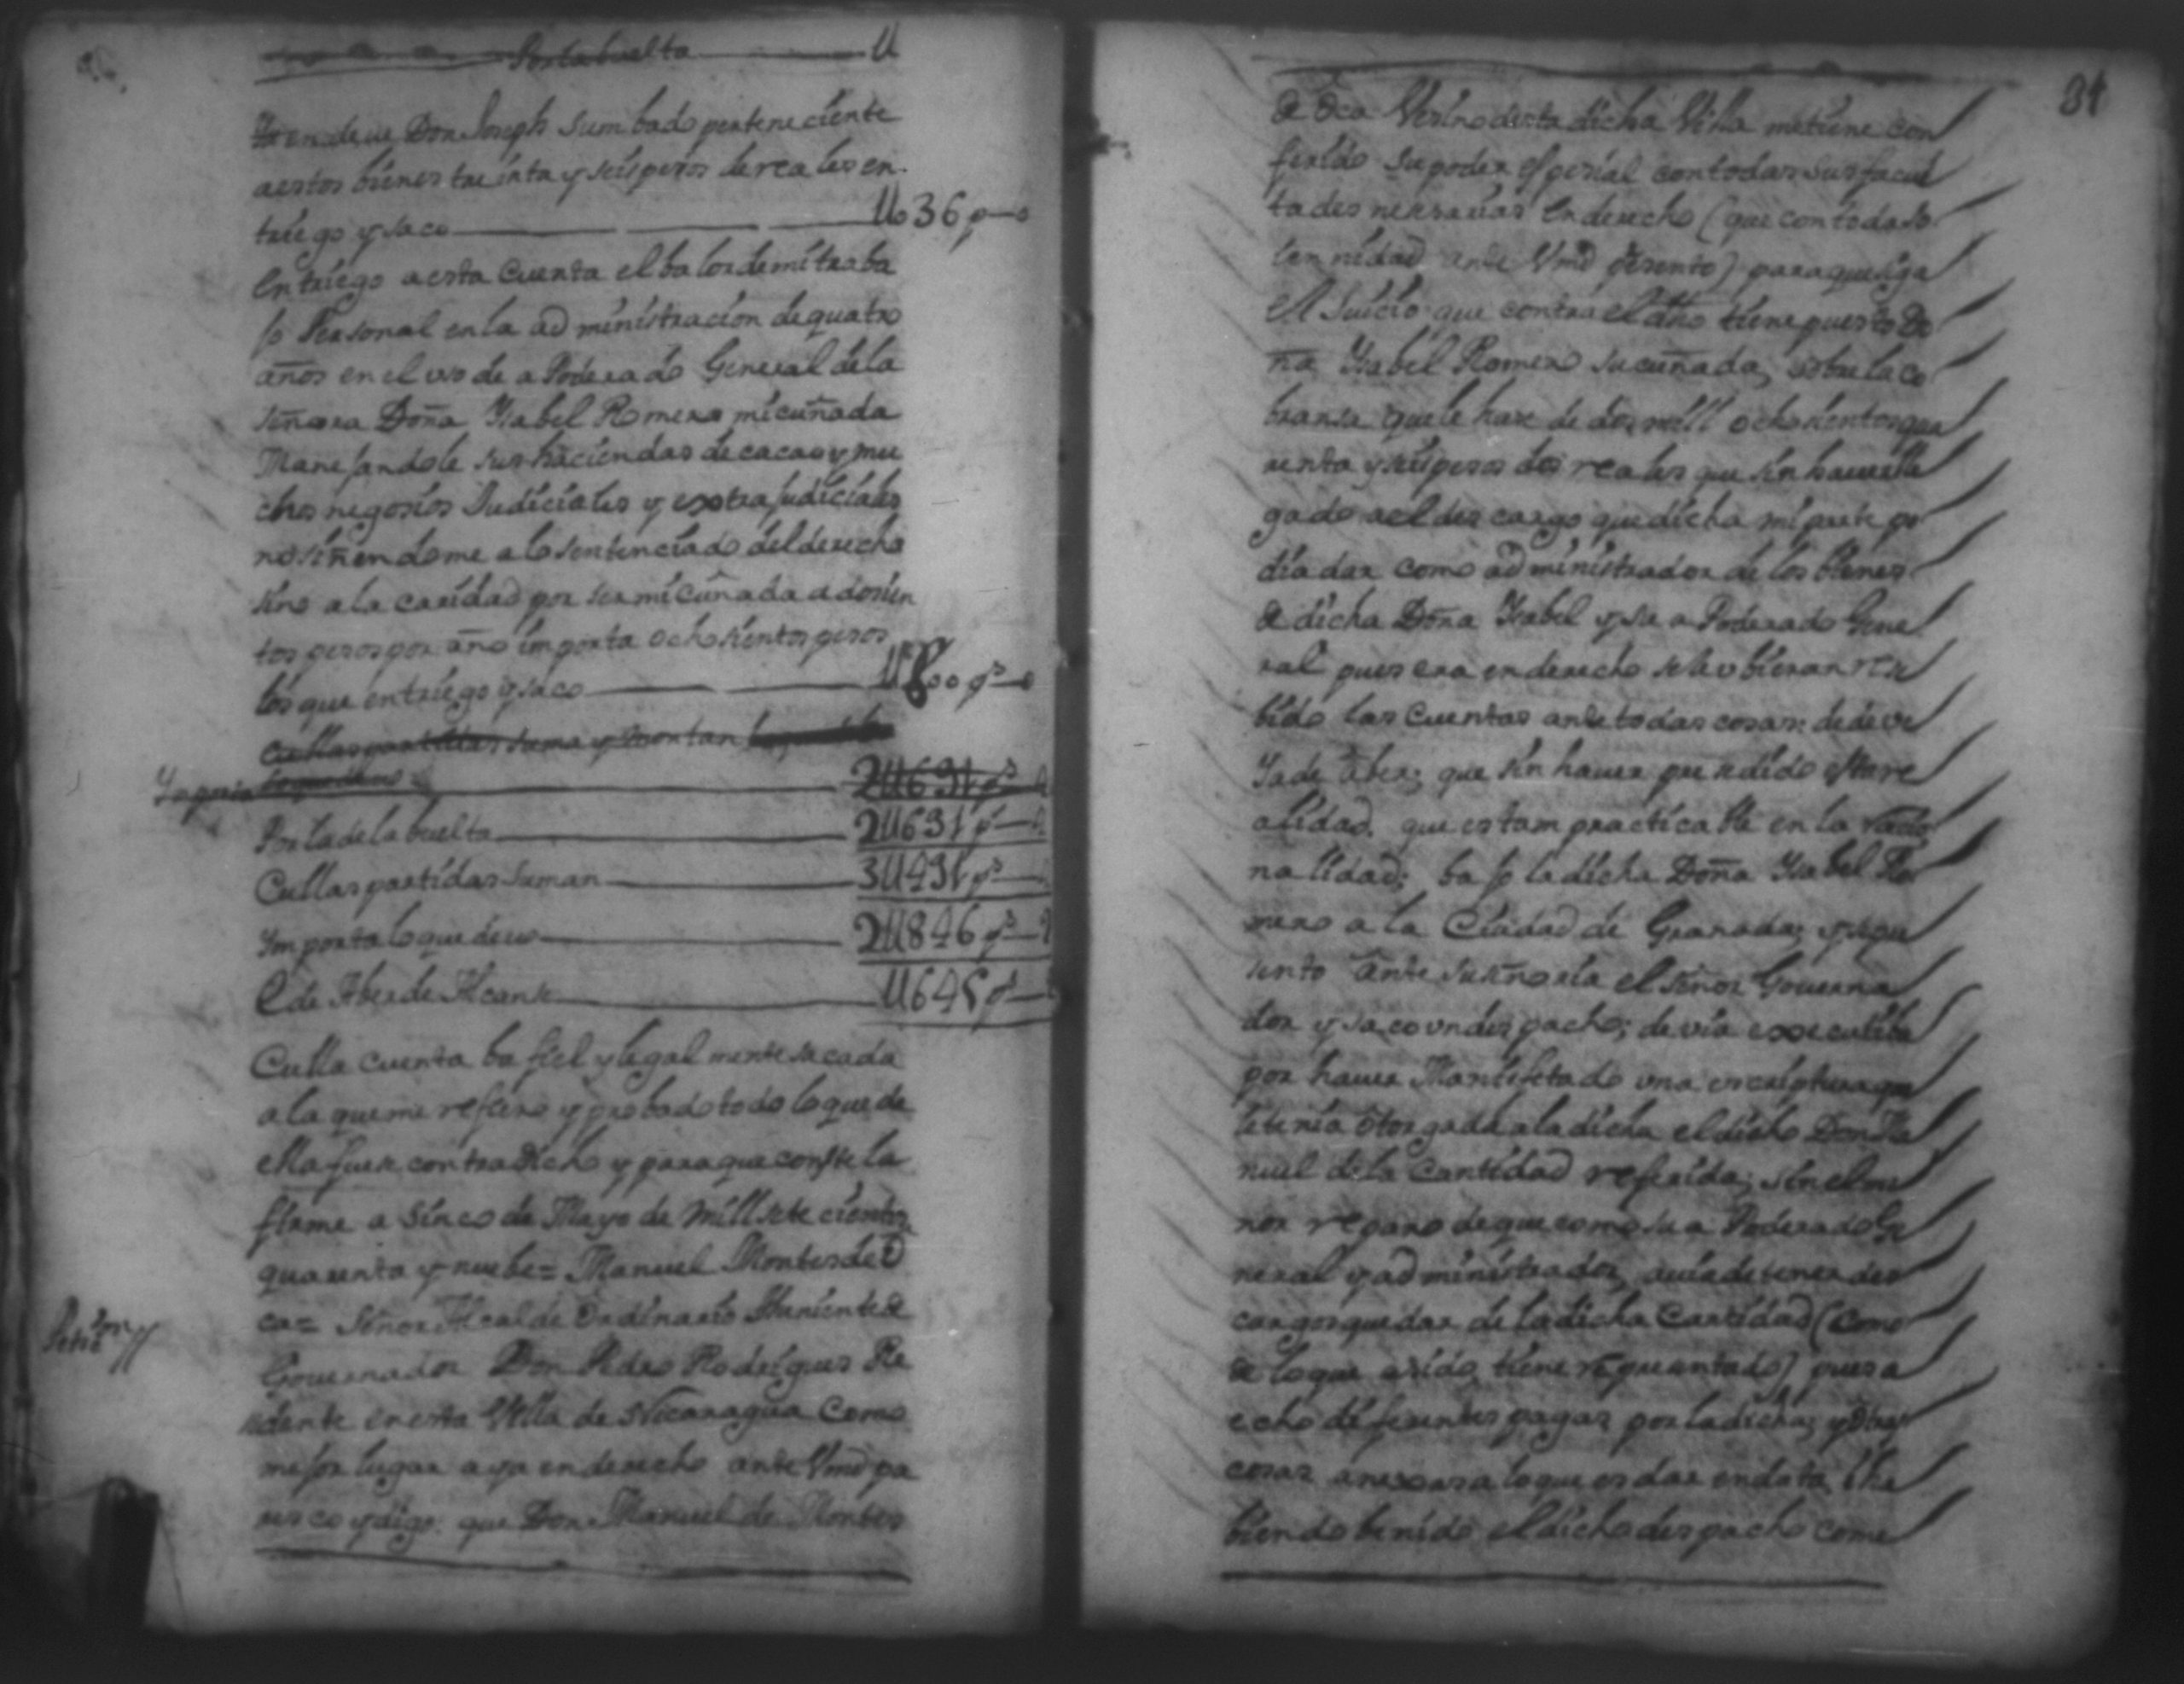 Por la buelta U
Yten deve Don Joseph Sumbado perteneciente
a estos bienes treinta y seis pesos de reales en
triego y saco U036 ps
Entriego a esta Cuenta el balor de mi traba
jo Personal en la administracion de quatro
años en el uso de a Poderado General de la
señora Doña Ysabel Romero mi cuñada
Manejandole sus haciendas de cacao y mu
chos negosios Judiciales y extrajudiciales
no siñendome a lo sentenciado del derecho
sino a la caridad por ser mi cuñada a dosien
tos pesos por año importa ochosientos pesos
los que entriego y saco U800 ps
Cullas partidas suma y montan
2U631 ps
Por la de la buelta 2U631 ps
Cullas partidas suman 3U431 ps
Ymporta lo que devo 2U846 ps
E de Aber de Alcanse U645 ps
Culla cuenta ba fiel y legal mente sacada
a la que me refiero y probado todo lo que de
ella fuere contradicho y para que conste la
firme a sinco de Mayo de mill sete cientos
quarenta y nuebe = Manuel Montes de O
ca = Señor Alcalde Ordinario Theniente de
Petiion
Governador Don Pedro Rodrigues Re
sidente en esta Villa de Nicaragua Como
mejor lugar aya en derecho ante Vmd pa
resco y digo: que Don Manuel de Montes
84
de Oca Vesino desta dicha Villa me tiene con
ferido su poder espesial con todas sus facul
tades nesesarias en derecho (que con toda so
lennidad ante Vmd presento) para que siga
el Juicio que contra el dho tiene puesto Do
ña Ysabel Romero su cuñada, sobre la co
bransa que le hase de dos mill ochosientos qua
renta y seis pesos dos reales que sin haver lle
gado a el descargo que dicha mi parte po
dia dar como administrador de los bienes
de dicha Doña Ysabel y su a Poderado Gene
ral pues era en derecho se le ubieran resi
bido las Cuentas ante todas cosas: de deve
Ya de aber; que sin haver presedido esta re
alidad que es tam practicable en la racio
nalidad; bajo la dicha Doña Ysabel Ro
mero a la Ciudad de Granada; y se pre
sento ante su señoria el señor Governa
dor y saco un despacho; de via executiba
por haver Manifestado una escriptura que
le tenia otorgada a la dicha el dicho Don Ma
nuel de la Cantidad referida; sin el me
nor reparo de que como su a Poderado Ge
neral y administrador, avia de tener des
cargos que dar de la dicha Cantidad (Como
de lo que a sido tiene requantado) pues a
echo diferentes pagas por la dicha; y otras
cosas anexas a lo que es dar en data E ha
biendo benido el dicho despacho come